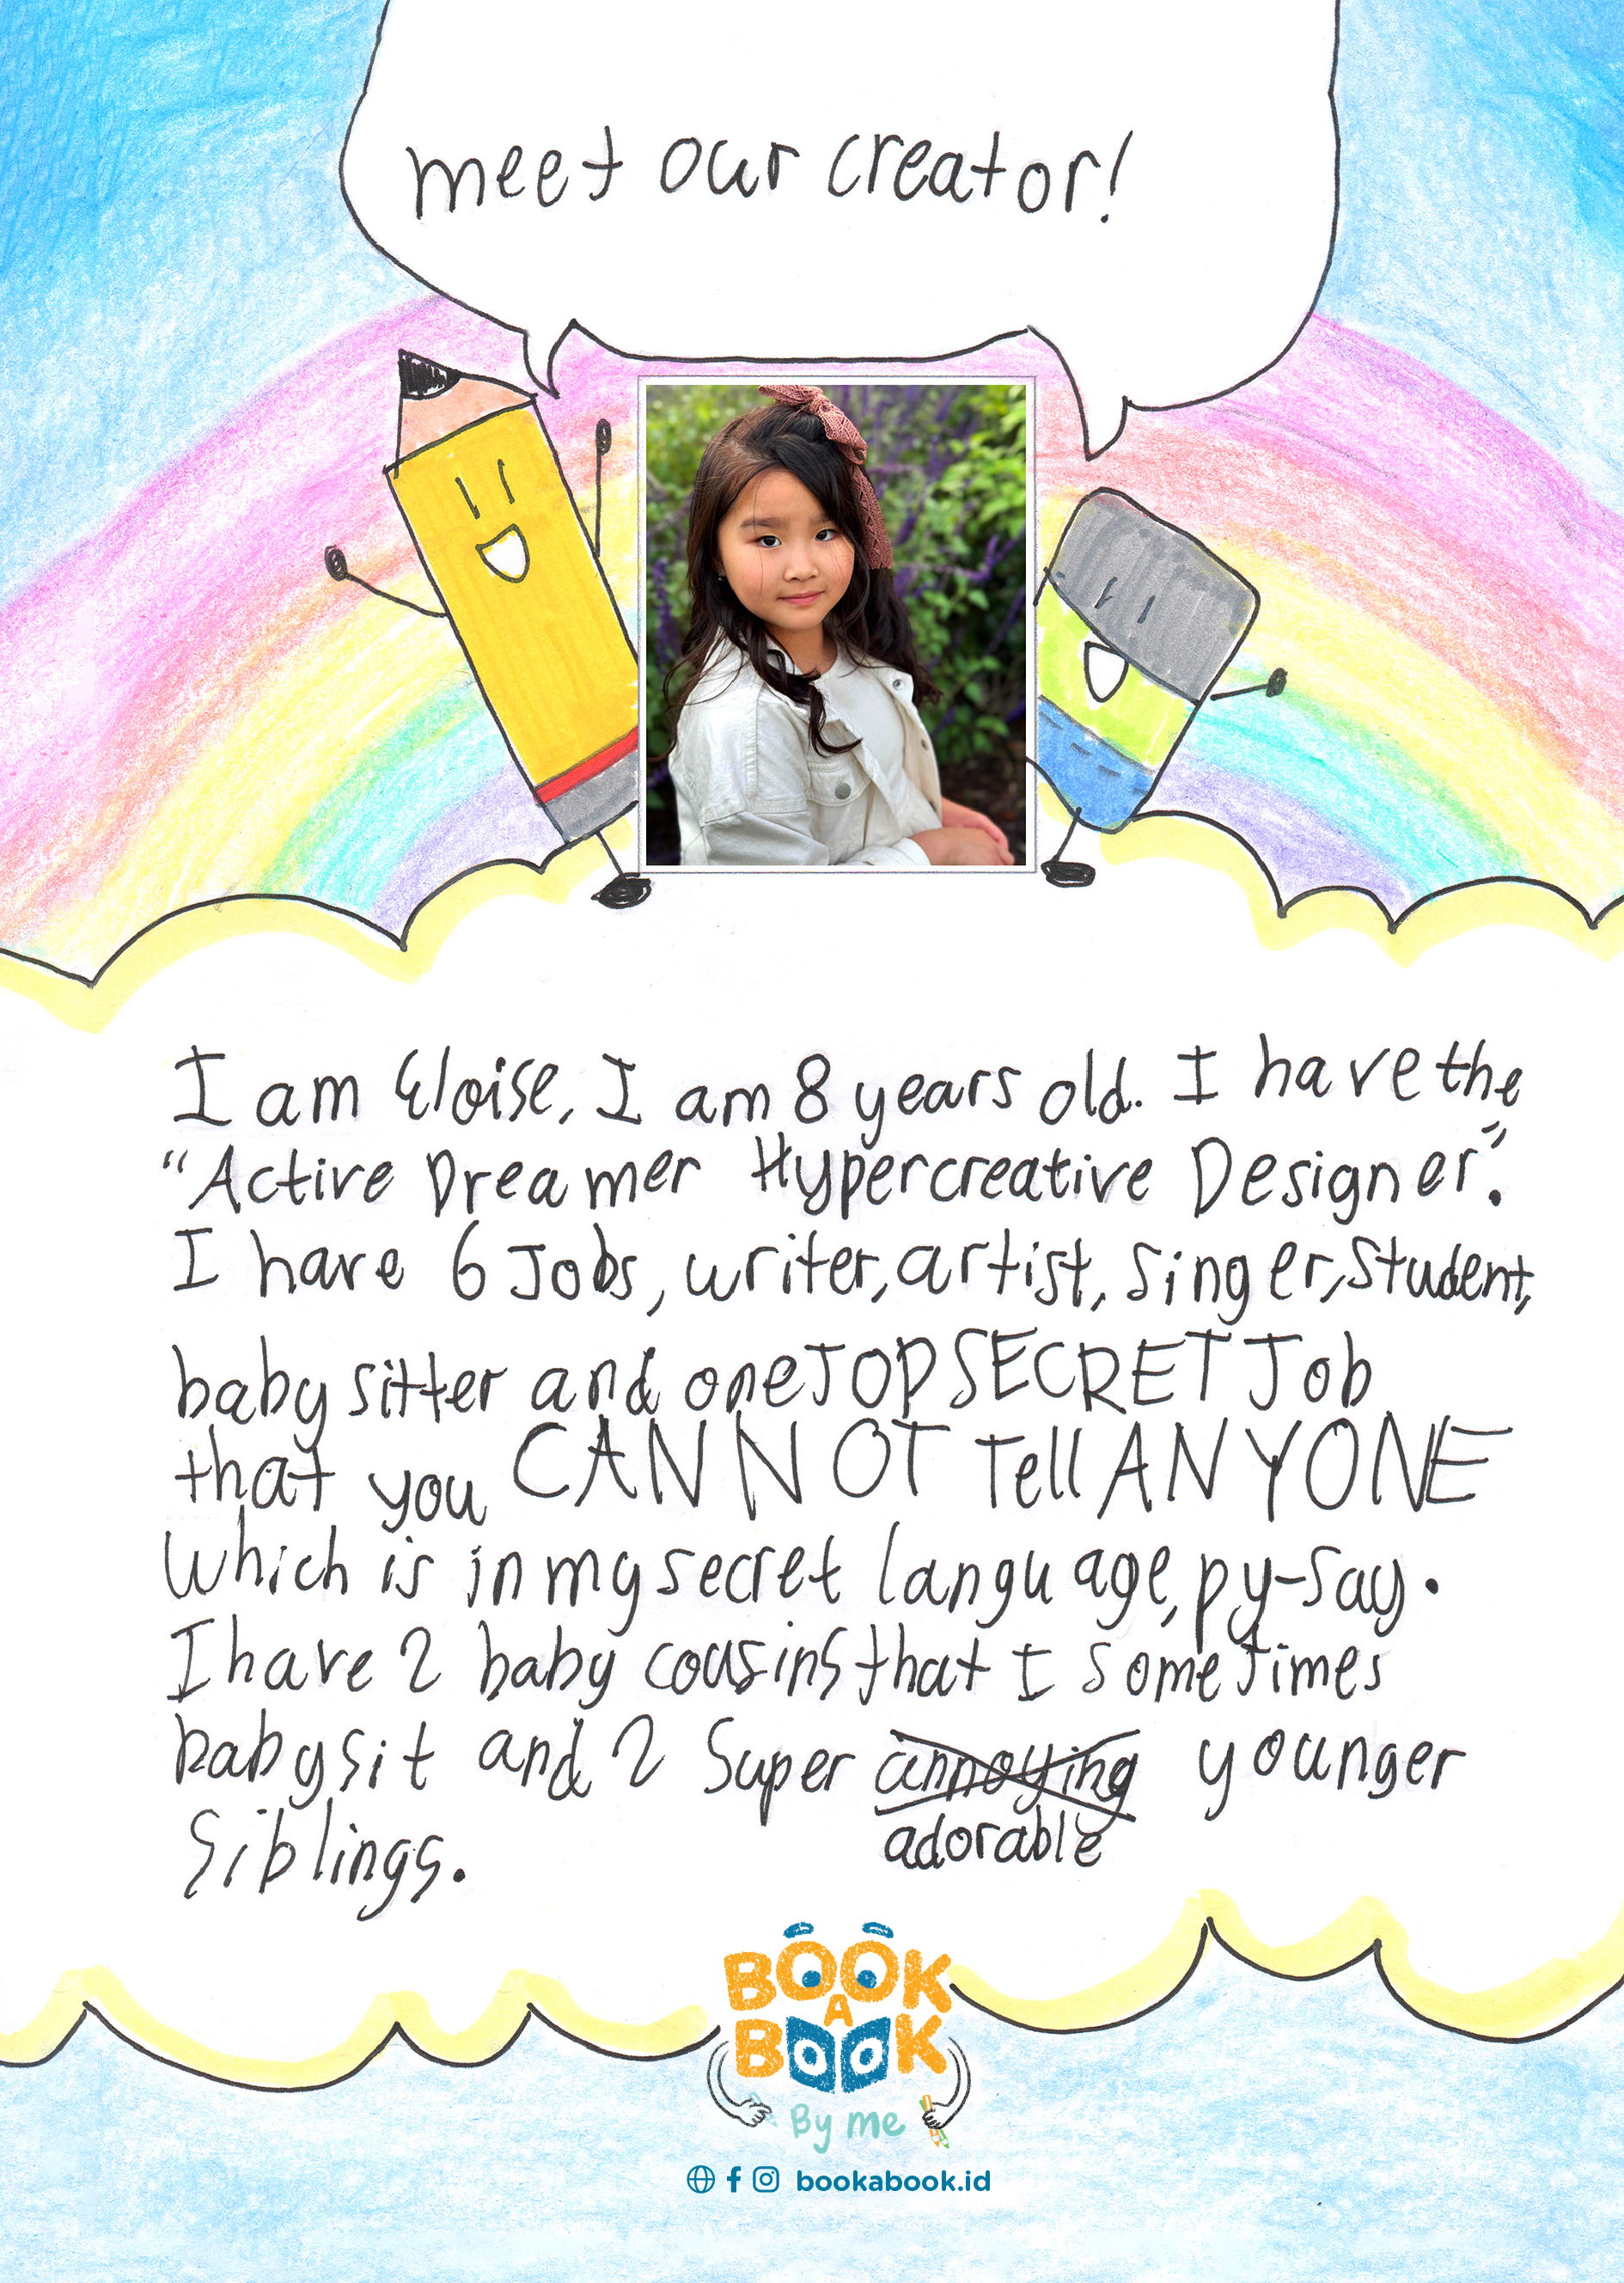 meet our creator!
I am Eloise, I am 8 years old. I have the
"Active Dreamer Hypercreative Designer".
I have 6 Jobs, writer, artist, singer, student,
babysitter and one TOP SECRET Job
that you CANNOT Tell ANYONE
which is in my secret language, py-say.
I have 2 baby cousins that I sometimes
babysit and 2 super annoying younger
adorable
siblings.
BOOK
A
BOOK
By me
bookabook.id